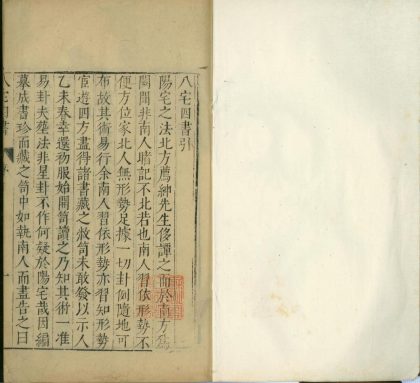 八宅四書引
陽宅之法北方薦紳先生侈譚之而於南方為
闊間非南人賭記不北若也南人習依形勢不
便方位家北人無形勢足據一切卦例隨地可
布故其術易行余南人習依形勢亦習知形勢
宦遊四方盡得諸書藏之敝笥未敢發以示人
乙未春幸還初服始開笥讀之乃知其術一准
易卦夫塟法非星卦不作何疑於陽宅哉因編
摹成書珍而藏之笥中如執南人而盡告之曰
八宅四書
一